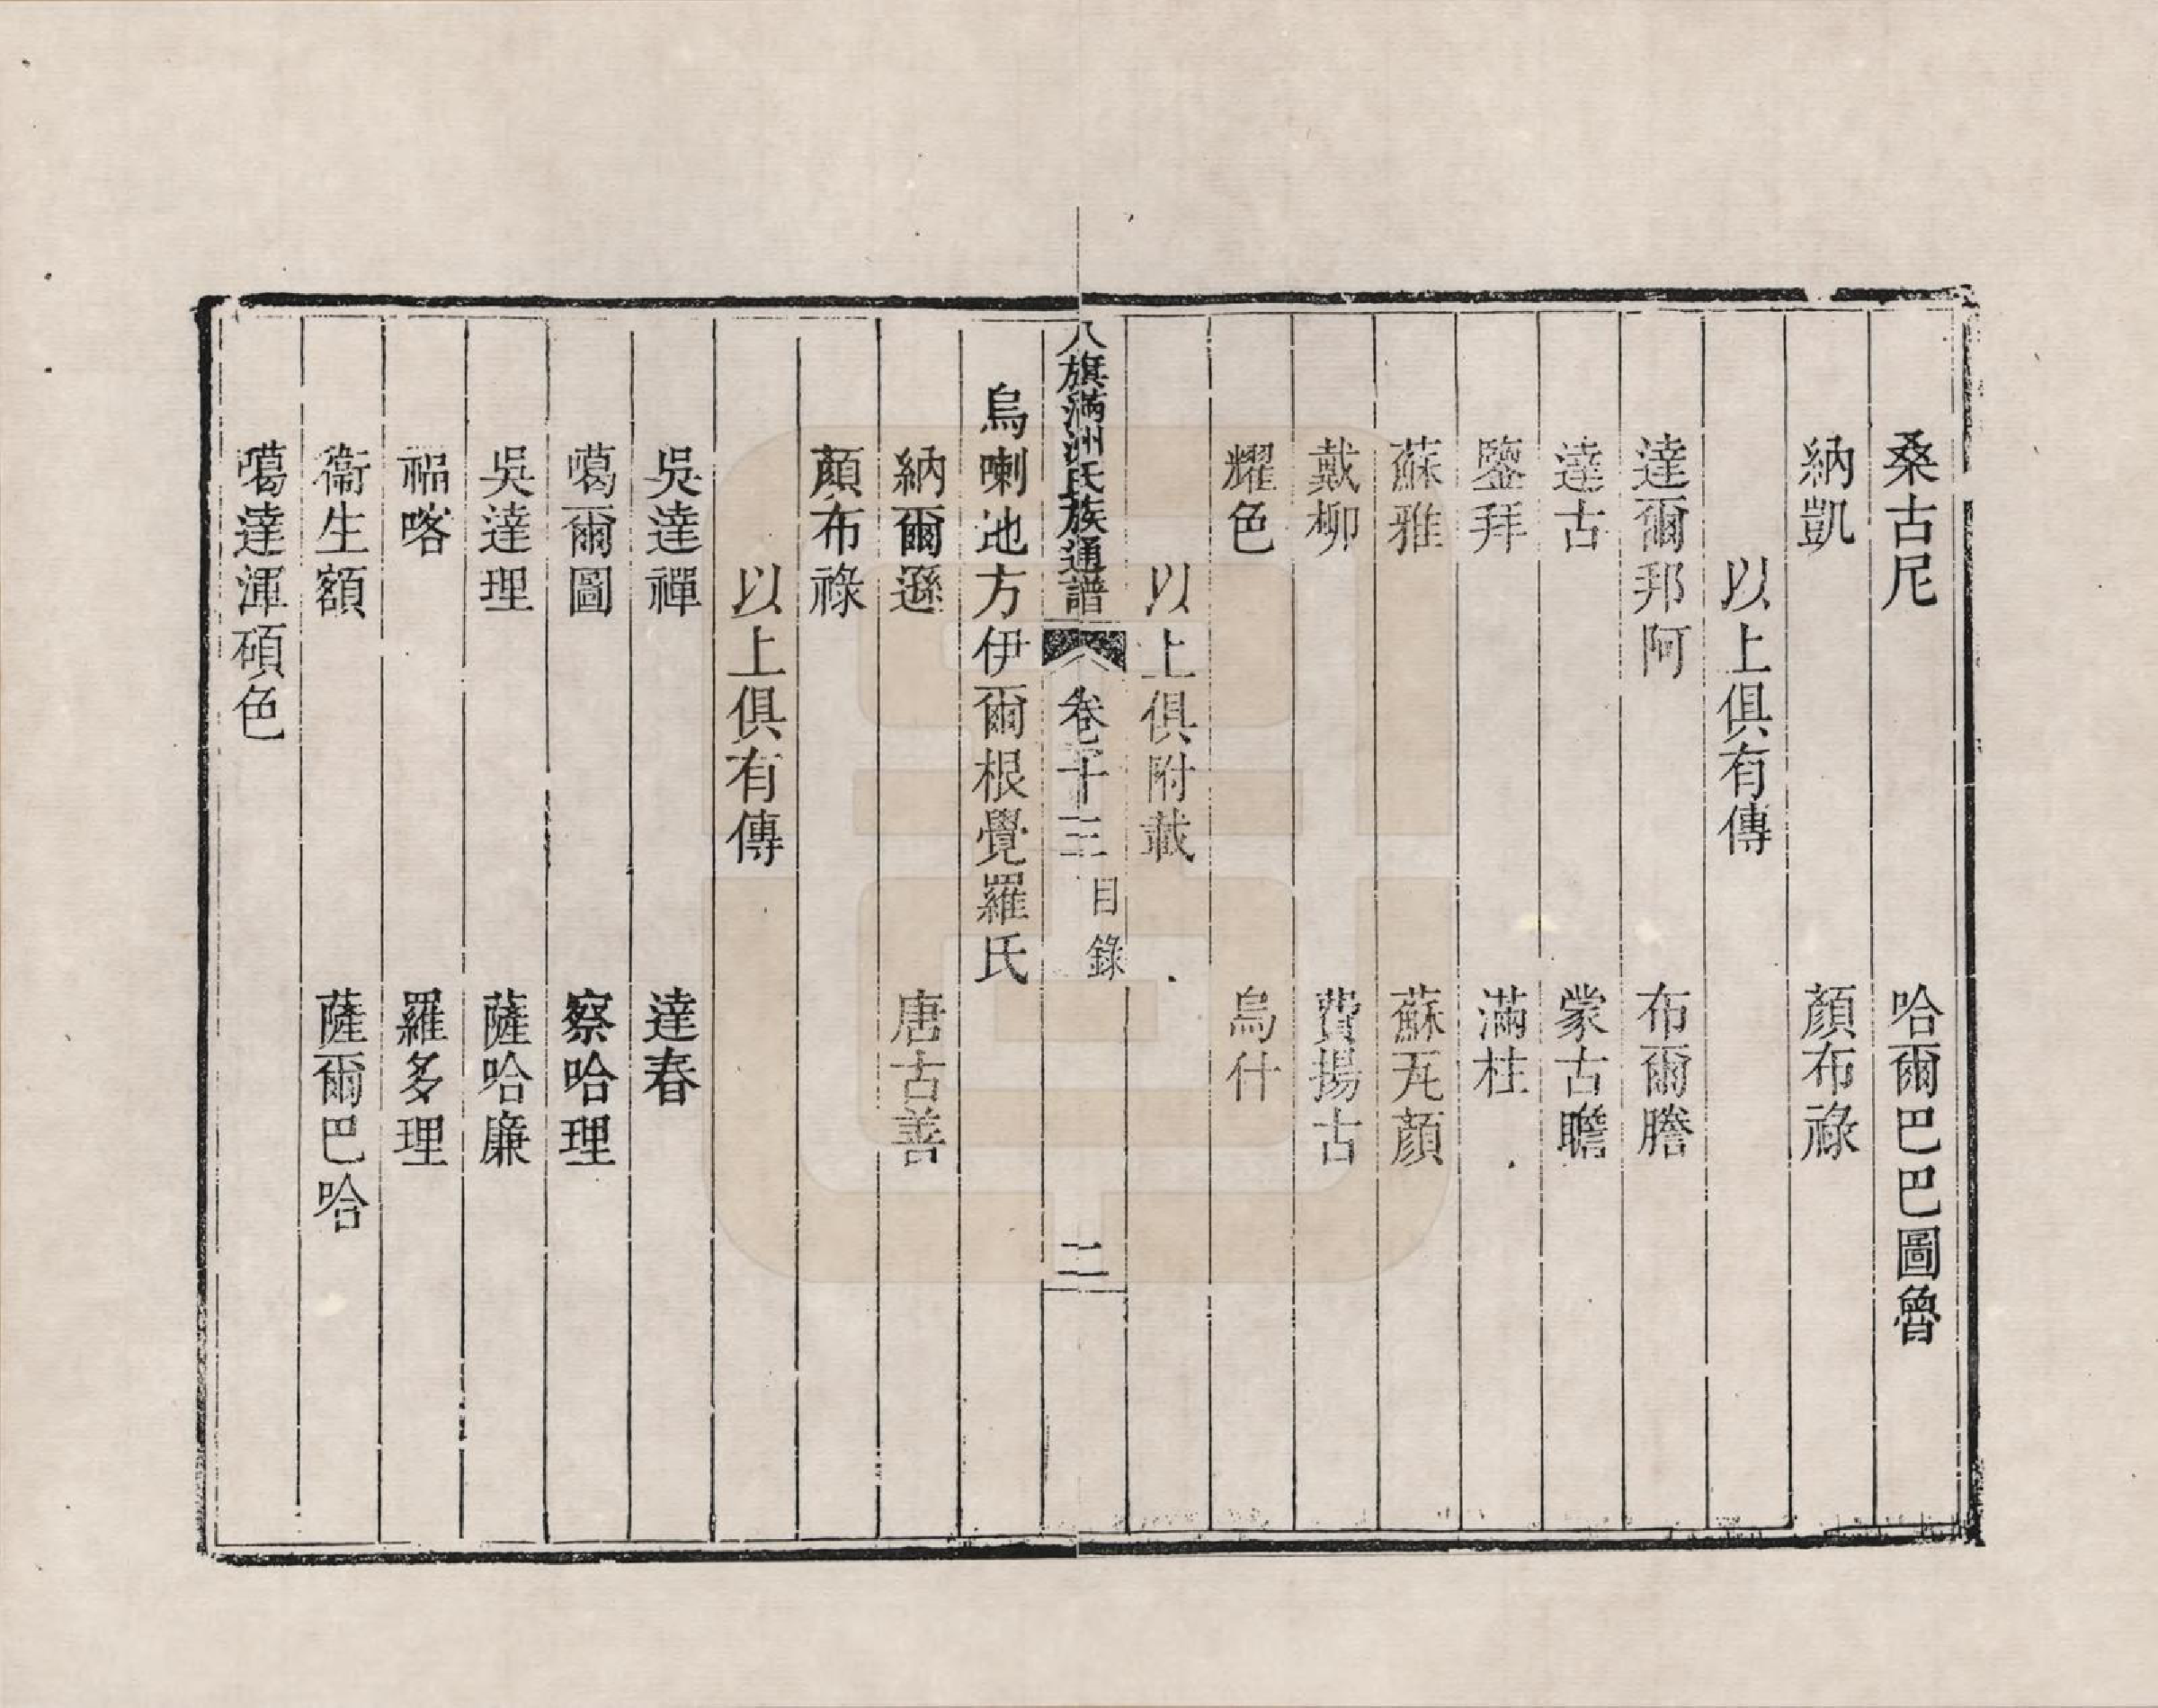 桑古尼　哈爾巴巴圖魯
納凱　顏布祿
以上俱有傳
達爾邦阿　布爾謄
達古　蒙古瞻
鑒拜　滿柱
蘇雅　蘇瓦顏
戴柳　費揚古
耀色　烏什
以上俱附載
八旗滿洲氏族通譜　卷十三　目錄　二
烏喇地方伊爾根覺羅氏
納爾遜　唐古善
顏布祿
以上俱有傳
吳達禪　達春
噶爾圖　察哈理
吳達理　薩哈廉
福喀　羅多理
衞生額　薩爾巴哈
噶達渾碩色